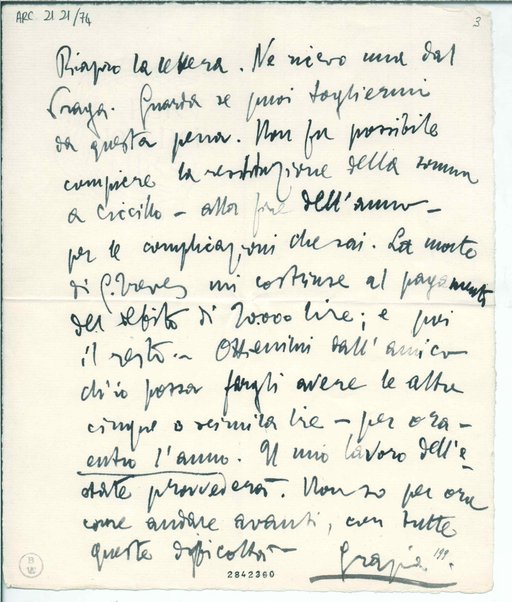 ARC 21 21/74
3
Riapro la lettera. Ne ricevo una dal
Praga. Guarda se puoi togliermi
da questa pena. Non fu possibile
compiere la restituzione della somma
a Ciccillo – alla fine dell'anno –
per le complicazioni che sai. La morte
di G. Treves mi costrinse al pagamento
del debito di 20000 lire; e poi
il resto – Ottienimi dall'amico
ch'io possa fargli avere le altre
cinque o seimila lire – per ora –
entro l'anno. Il mio lavoro dell'e-
state provvederà. Non so per ora
come andare avanti, con tutte
queste difficoltà –
Grazie
2842360